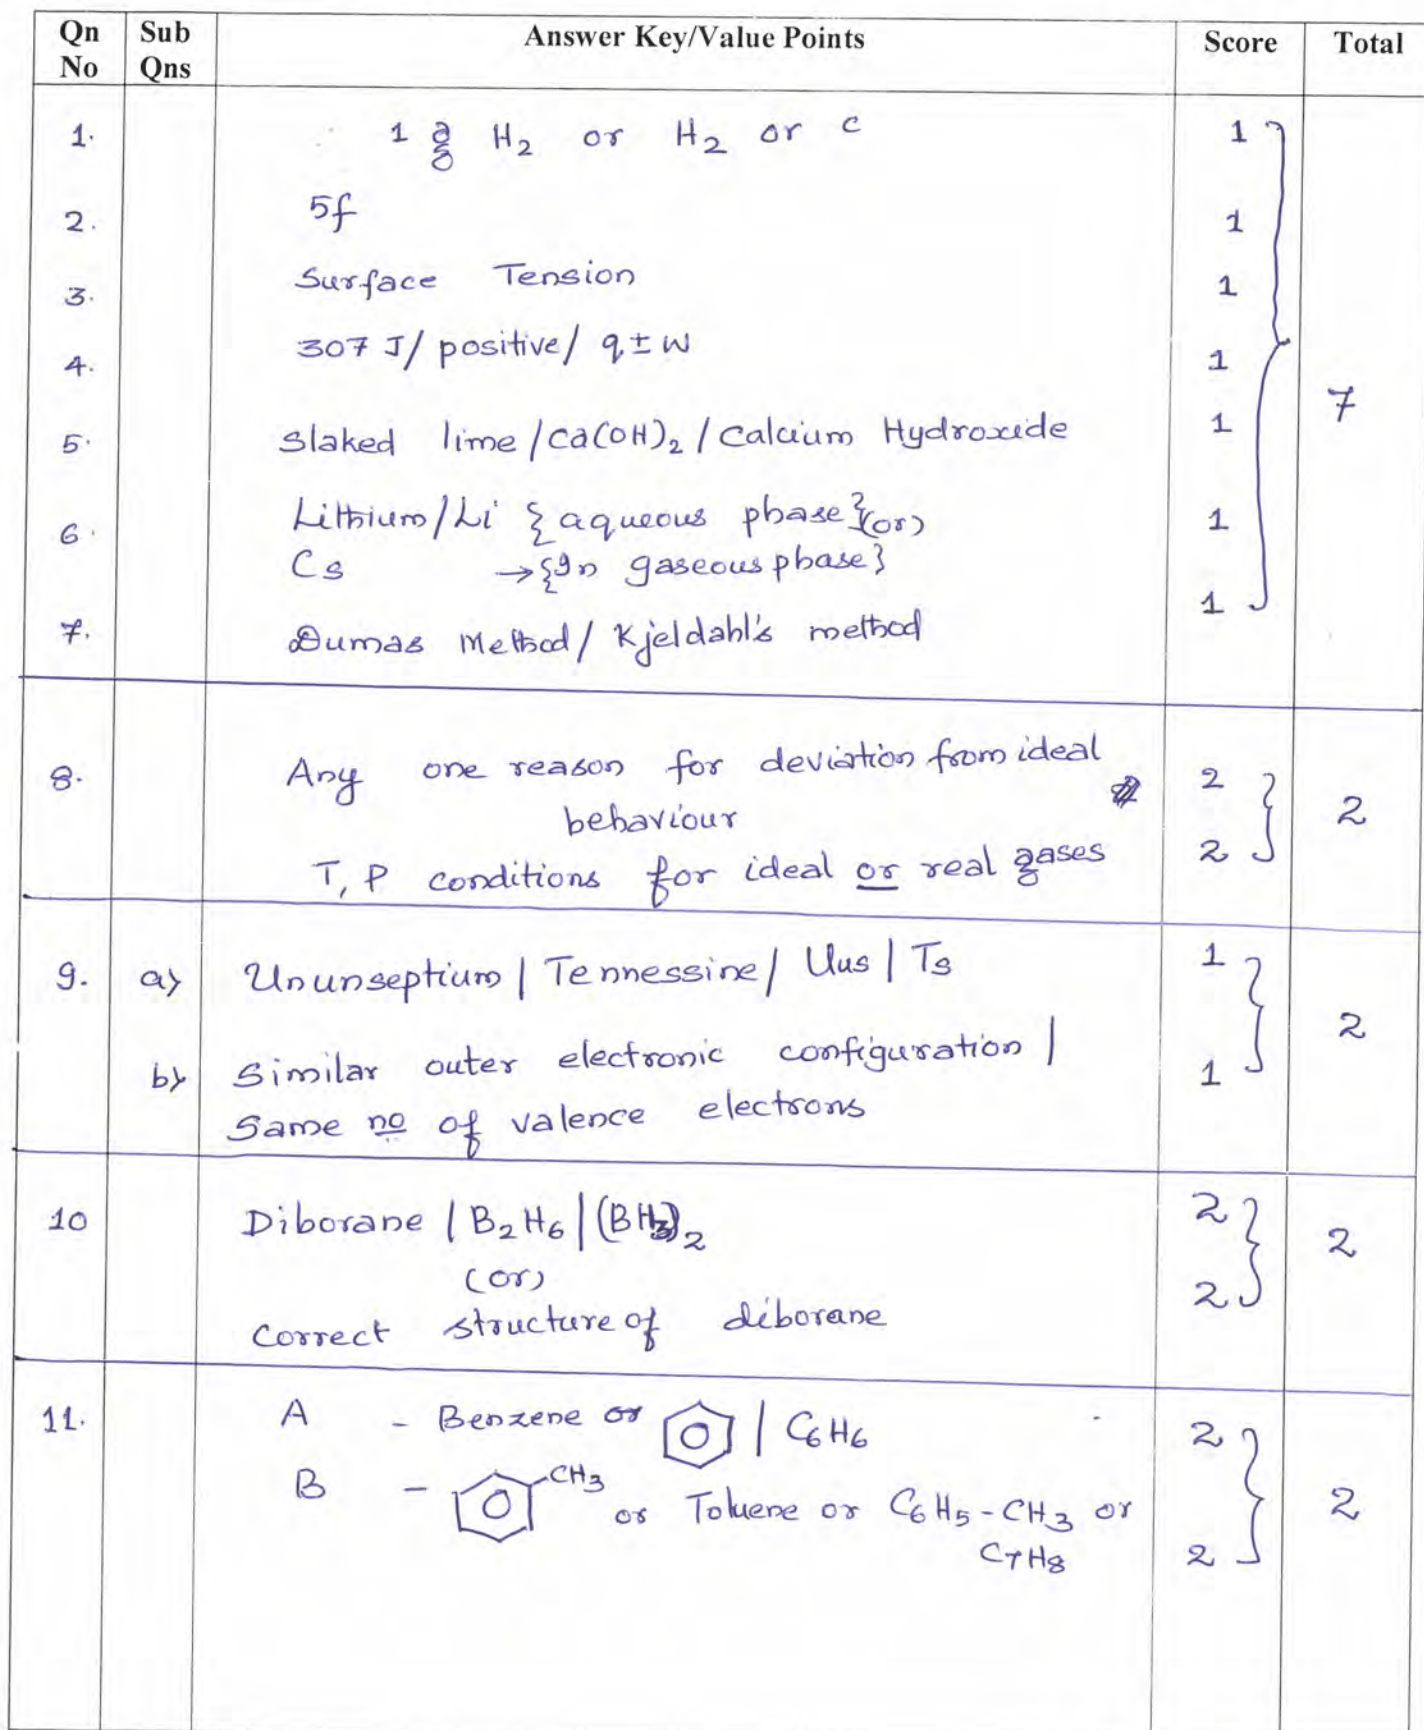 Qn No Sub Qns Answer Key/Value Points Score Total
1. 1 g H₂ or H₂ or c 1
2. 5f 1
3. Surface Tension 1
4. 307 J/ positive/ q ± w 1
7
5. Slaked lime /Ca(OH)₂ / Calcium Hydroxide 1
6. Lithium/Li {aqueous phase}(or) 1
Cs →{In gaseous phase}
7. Dumas Method/ Kjeldahl's method 1
8. Any one reason for deviation from ideal 2
behaviour 2
T, P conditions for ideal or real gases 2
9. a) Ununseptium | Tennessine/ Uus | Ts 1
2
b) Similar outer electronic configuration | 1
Same no of valence electrons
10 Diborane | B₂H₆ | (BH₃)₂ 2
(or) 2
Correct structure of diborane 2
11. A - Benzene or | C₆H₆ 2
B - CH₃ or Toluene or C₆H₅-CH₃ or 2
C₇H₈ 2